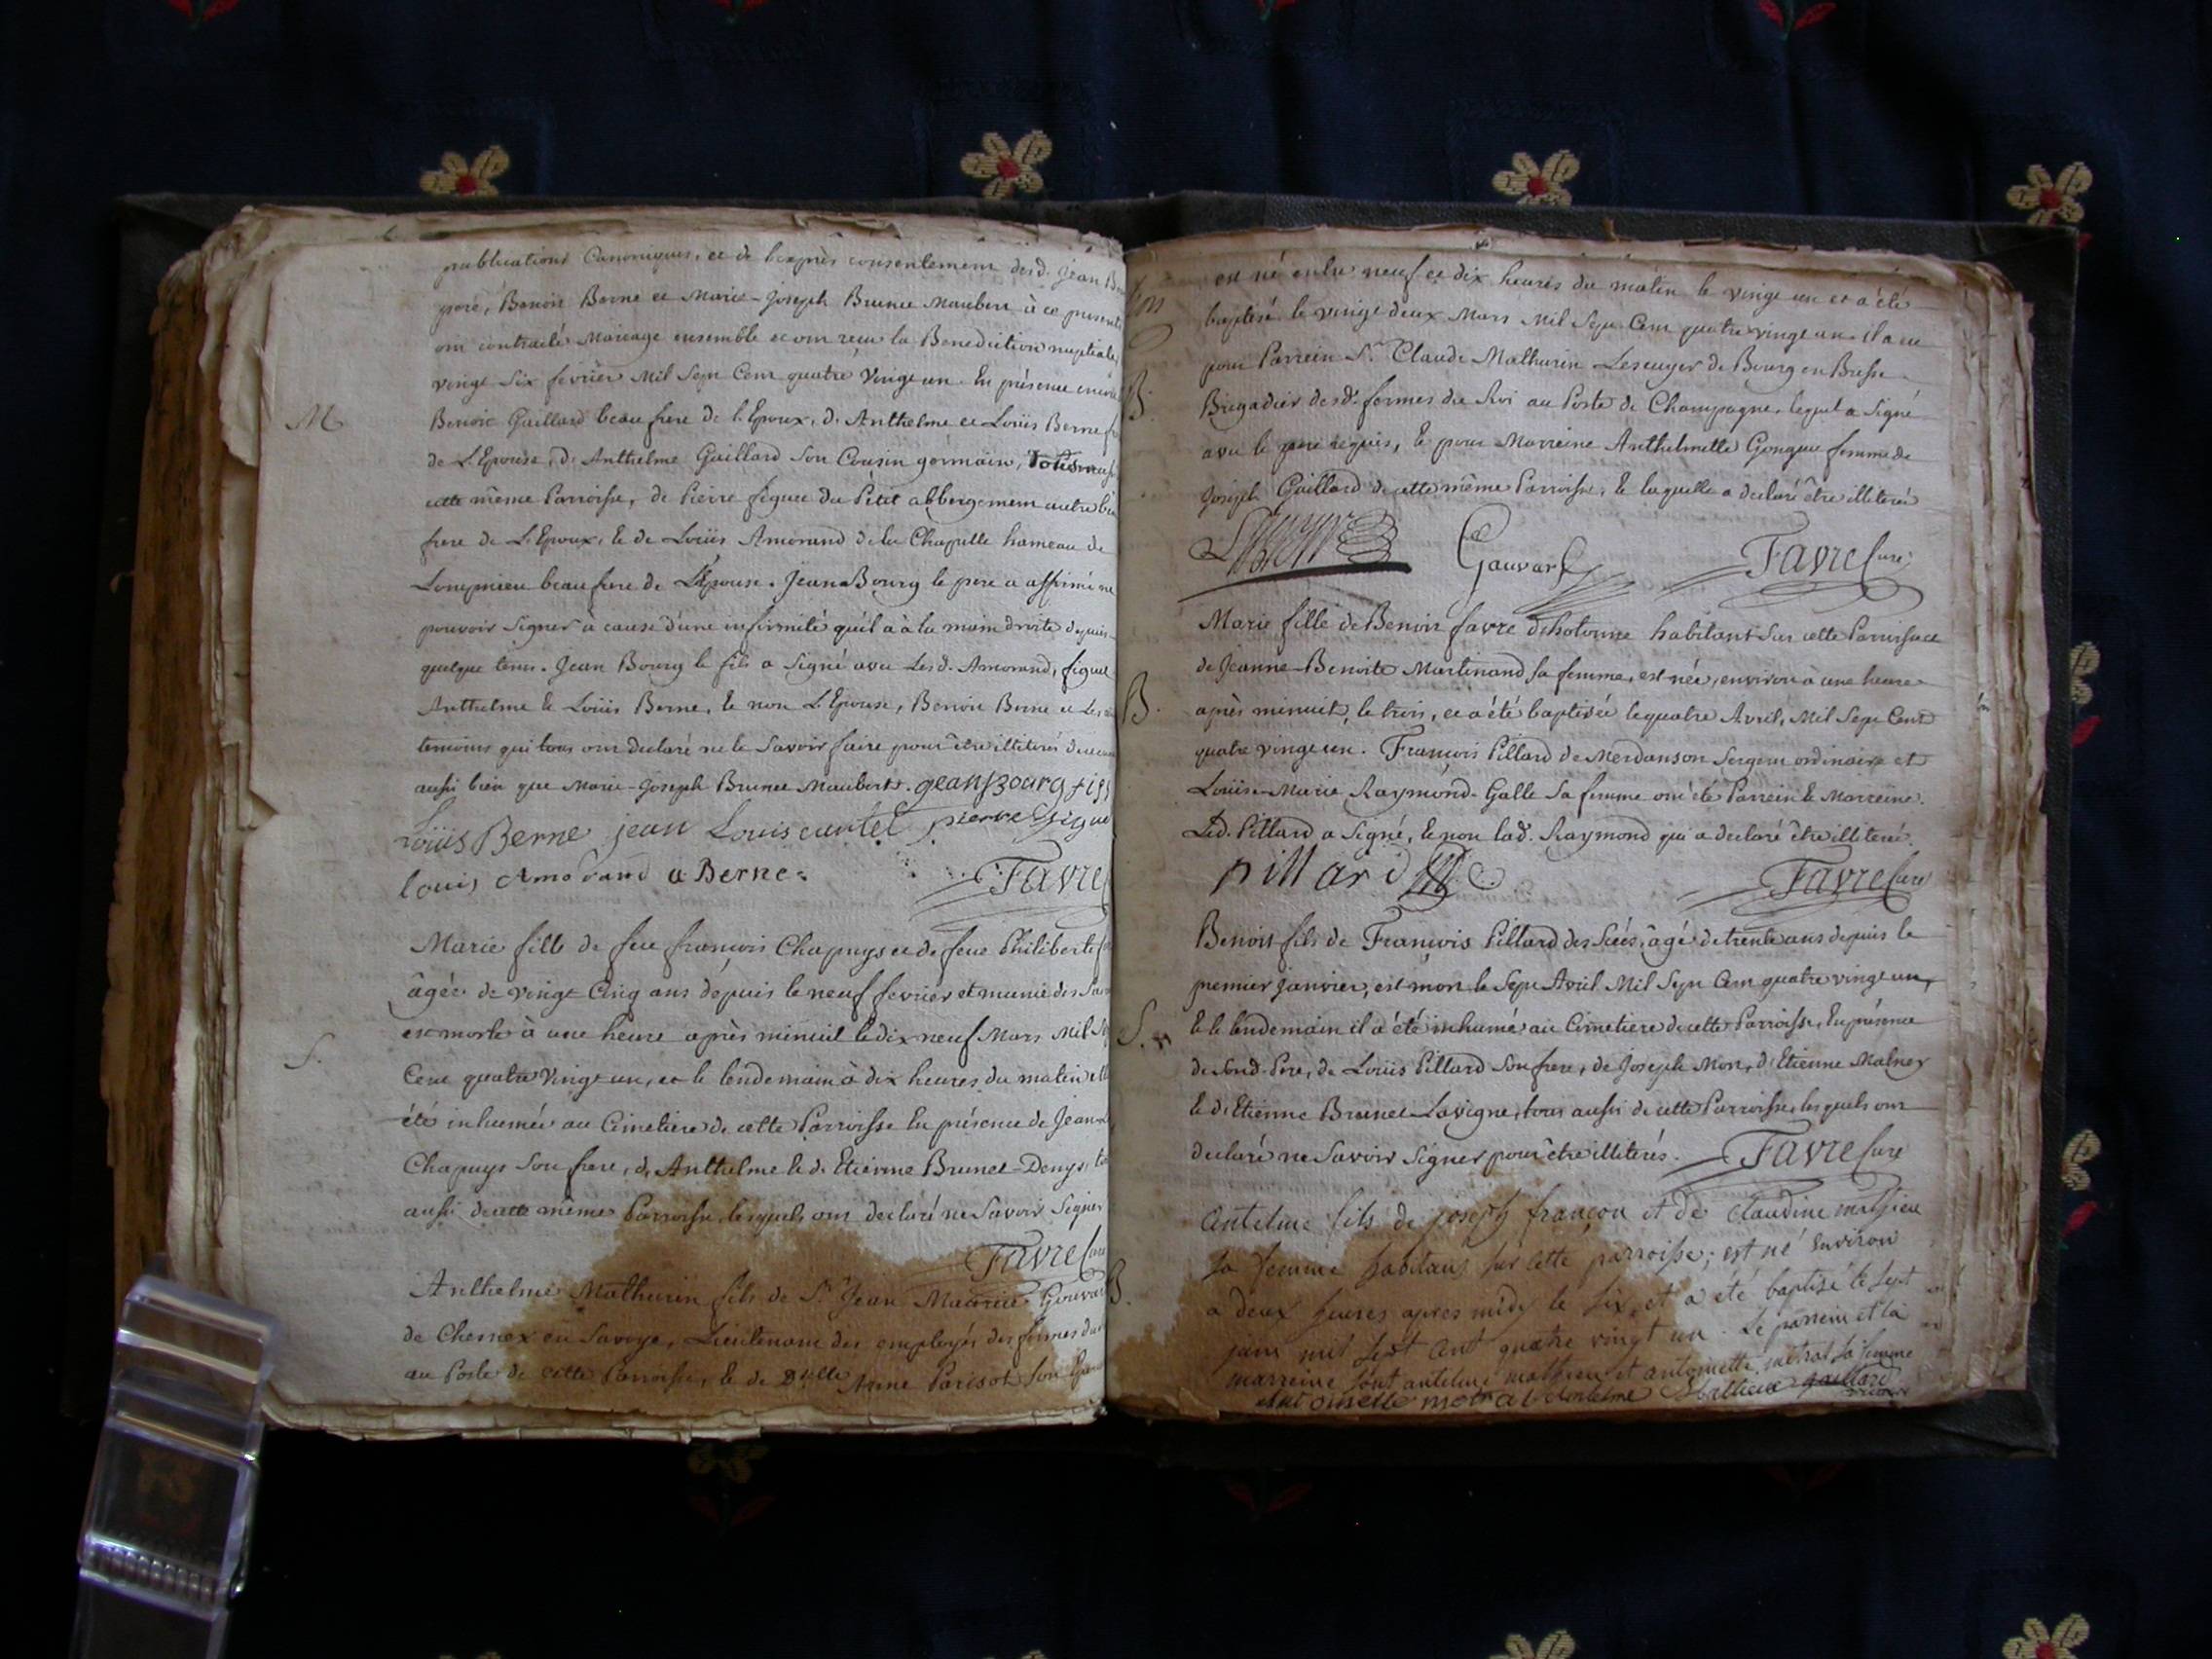 publications Canoniques, et de l'exprès consentement desd. Jean
pere, Benoit Berne et Marie-Joseph Brunet Maubert à ce presents
ont contracté Mariage ensemble et ont reçu la Benediction nuptiale
vingt Six fevrier Mil Sept Cent quatre Vingt un. En présence
M
Benoit Gaillard beau frere de l'Epoux, d. Anthelme et Loüis Berne
de L'Epouse, d. Anthelme Gaillard son Cousin germain,
cette même Parroisse, de Pierre figuet du Petit abbergement autre
frere de L'Epoux, & de Loüis Amorand de la Chapelle hameau de
Lompnieu beau frere de L'Epouse. Jean Bourg le pere a affirmé ne
pouvoir Signer à cause d'une infirmité qu'il a à la main droite depuis
quelque tems. Jean Bourg le fils a Signé avec Lesd. Amorand, figuet
Anthelme & Loüis Berne, & non L'Epouse, Benoit Berne et Les
temoins qui tous ont declaré ne le Savoir faire pour être illiterés
aussi bien que Marie-Joseph Brunet Maubert. jean Bourg fils
Loüis Berne jean Louis curtet pierre figuet
louis Amorand a Berne
Favre
Marie fille de feu françois Chapuys et de feue Philiberte
âgée de vingt Cinq ans depuis le neuf fevrier et munie des
est morte à une heure après minuit le dix neuf Mars Mil
S.
Cent quatre Vingt un, et le lendemain à dix heures du matin
été inhumée au Cimetiere de cette Parroisse En présence de Jean
Chapuys Son frere, d. Anthelme & d. Etienne Brunet-Denys,
aussi de cette même Parroisse, lesquels ont declaré ne Savoir Signer
Favre Curé
Anthelme Mathurin fils de Sr. Jean Maurice Gouvard
de Chesnex en Savoye, Lieutenant des employés des fermes du
au Poste de cette Parroisse, & de Dlle Anne Parisot Son
B.
est né entre neuf et dix heures du matin le vingt un et a été
baptisé le vingt deux Mars Mil Sept Cent quatre vingt un. il a eu
pour Parrein Sr. Claude Mathurin Lescuyer de Bourg en Bresse
B.
Brigadier desd. fermes du Roi au Poste de Champagne, lequel a Signé
avec le pere requis, & pour Marreine Anthelmette Gongue femme de
Joseph Gaillard de cette même Parroisse, & laquelle a declaré être illiterée
Gauvard Favre Curé
Marie fille de Benoit favre d'hotonne habitant Sur cette Parroisse et
de Jeanne-Benoite Martinand sa femme, est née, environ à une heure
B.
après minuit, le trois, et a été baptisée le quatre Avril, Mil Sept Cent
quatre vingt un. François Pillard de Merdanson Sergent ordinaire et
Loüise-Marie Raymond-Galle Sa femme ont été Parrein & Marreine.
Led. Pillard a Signé, & non lad. Raymond qui a declaré être illiterée.
pillard Favre Curé
Benoit fils de François Pillard des Scies, âgé de trente ans depuis le
premier janvier, est mort le Sept Avril Mil Sept Cent quatre vingt un,
S.
& le lendemain il a été inhumé au Cimetiere de cette Parroisse, En présence
de Sond. Pere, de Loüis Pillard Son frere, de Joseph Mon, d'Etienne Malner
& d. Etienne Brunet-Lavigne, tous aussi de cette Parroisse, lesquels ont
declaré ne Savoir Signer pour être illiterés. Favre Curé
Antelme fils de joseph françon et de claudine mathieu
Sa femme habitans Sur cette parroisse; est né Environ
a deux heures apres midy le Six, et a été baptisé le Sept
juin mil Sept Cent quatre vingt un. Le parrein et la
marreine Sont antelme mathieu et antoinette metrat Sa femme
Antoinette metrat Antelme Mathieu